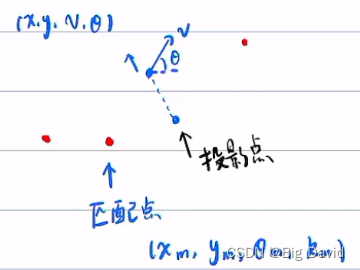 (x,y,v,θ)
v
θ
投影点
匹配点
(xm, ym, θm, km)
CSDN @Big David